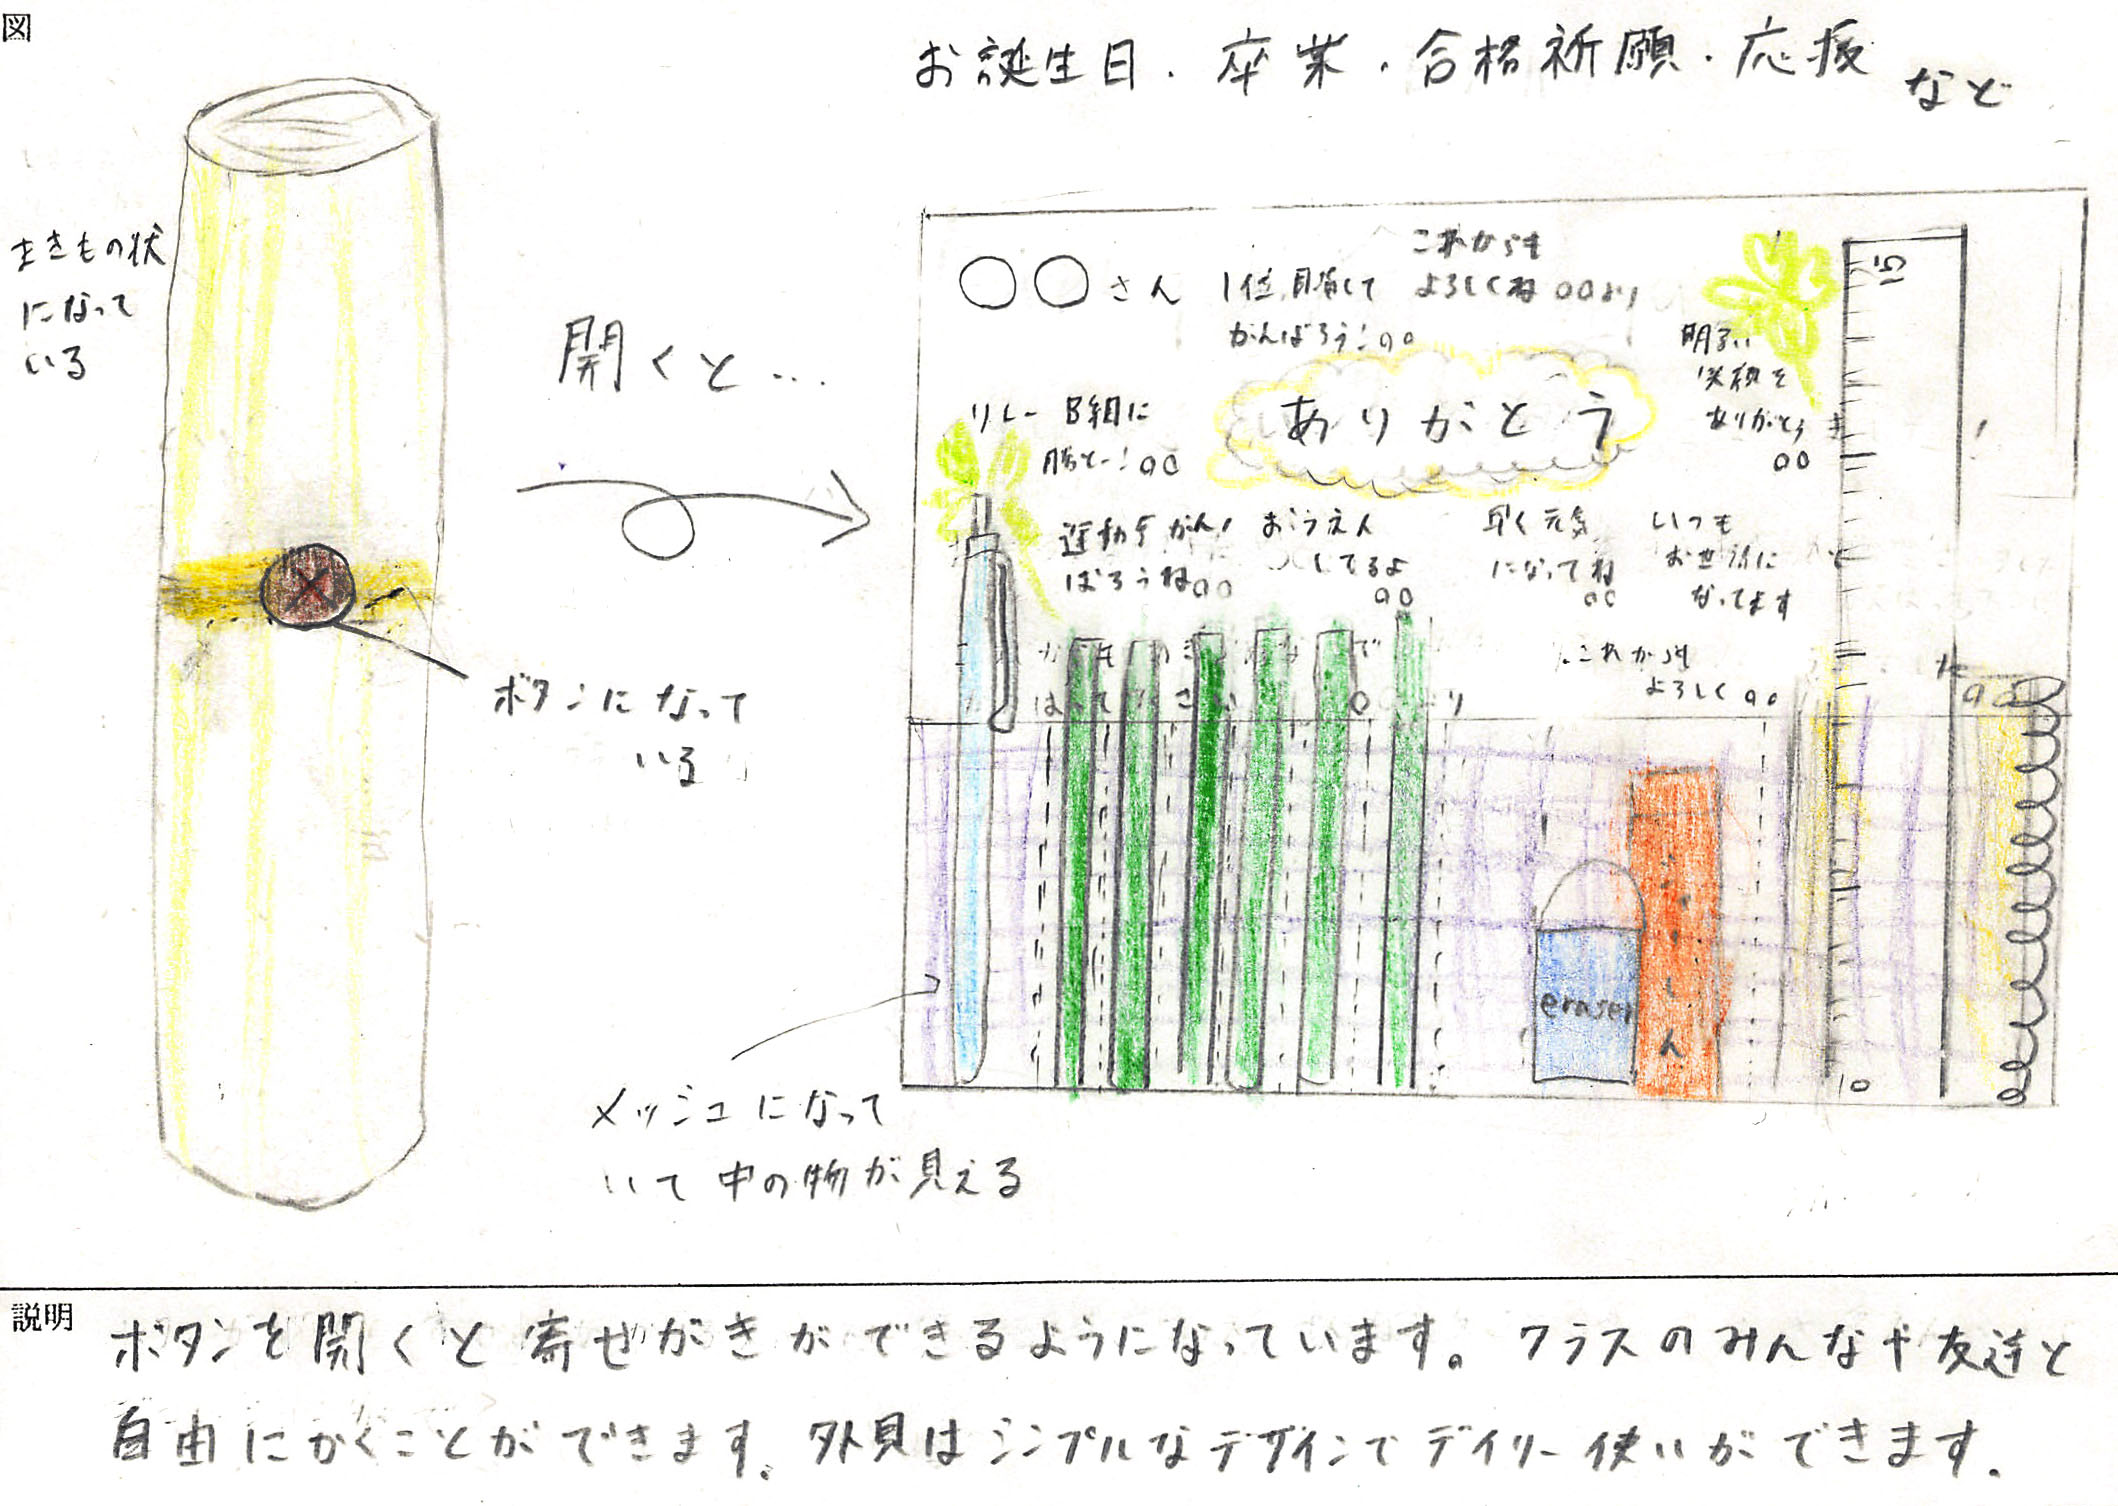 図
お誕生日・卒業・合格祈願・応援 など
まきもの状
になって
いる
開くと…
ボタンになって
いる
メッシュになって
いて中の物が見える
○○さん
1位目指して
がんばろう!○○
これからも
よろしくね ○○より
明るい
笑顔を
ありがとう
○○
リレーB組に
勝とー!○○
ありがとう
運動手がん
ばろうね○○
おうえん
してるよ
○○
早く元気
になってね
○○
いつも
お世話に
なってます
これからも
よろしく○○
15
eraser
10
説明
ボタンを開くと寄せがきができるようになっています。クラスのみんなや友達と
自由にかくことができます。外見はシンプルなデザインでデイリー使いができます。